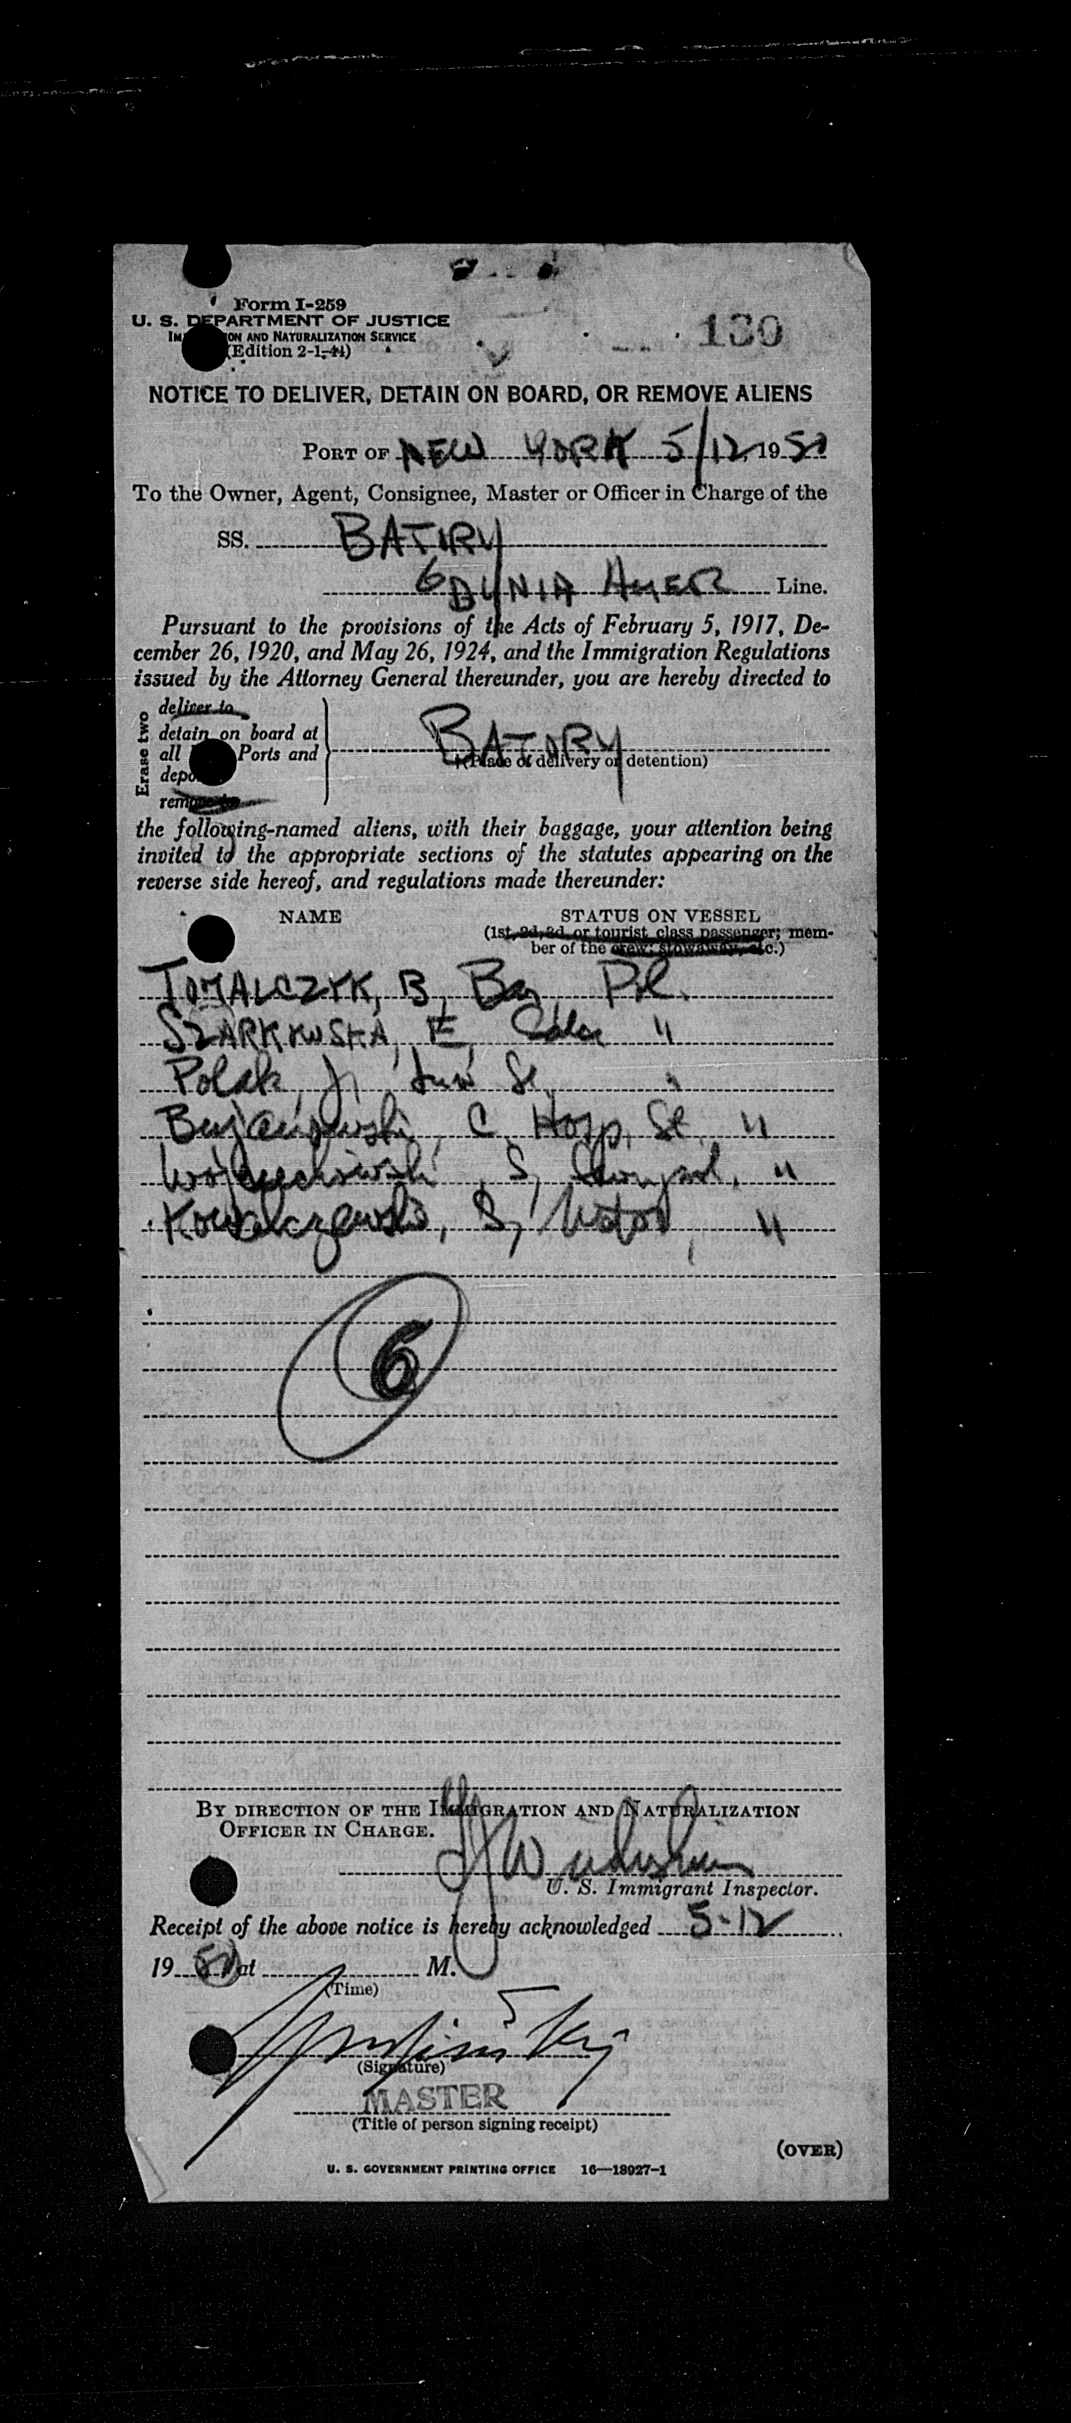 Form I-259
U. S. DEPARTMENT OF JUSTICE
IMMIGRATION AND NATURALIZATION SERVICE
(Edition 2-1-44)
130
NOTICE TO DELIVER, DETAIN ON BOARD, OR REMOVE ALIENS
PORT OF NEW YORK 5/12, 1950
To the Owner, Agent, Consignee, Master or Officer in Charge of the
SS. BATORY
GDYNIA AMER Line.
Pursuant to the provisions of the Acts of February 5, 1917, De-
cember 26, 1920, and May 26, 1924, and the Immigration Regulations
issued by the Attorney General thereunder, you are hereby directed to
Erase two
deliver to
detain on board at
all Ports and
depo
remove to
BATORY
(Place of delivery or detention)
the following-named aliens, with their baggage, your attention being
invited to the appropriate sections of the statutes appearing on the
reverse side hereof, and regulations made thereunder:
NAME STATUS ON VESSEL
(1st, 2d, 3d, or tourist class passenger; mem-
ber of the crew; stowaway, etc.)
TOMALCZYK, B, Pol.
SZARKOWSKA, E, "
Polak, J, "
C, Hosp, St, "
Wojciechowski, S, "
Kowalczewski, S, Motor, "
6
BY DIRECTION OF THE IMMIGRATION AND NATURALIZATION
OFFICER IN CHARGE.
U. S. Immigrant Inspector.
Receipt of the above notice is hereby acknowledged 5-12
1950 at M.
(Time)
(Signature)
MASTER
(Title of person signing receipt)
(OVER)
U. S. GOVERNMENT PRINTING OFFICE 16—18927-1